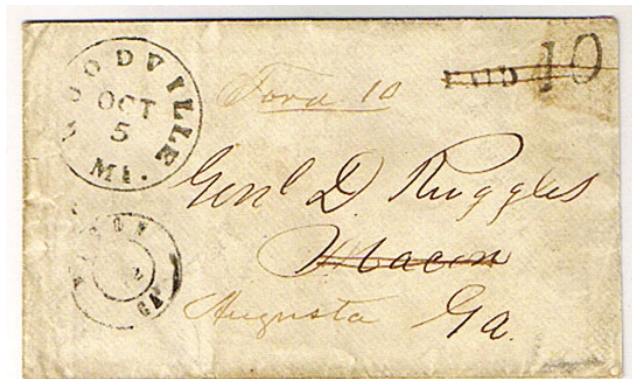 WOODVILLE
OCT
5
Mi.
PAID 10
Forw'd 10
Genl D Ruggles
Macon
Augusta Ga.
MACON
GA